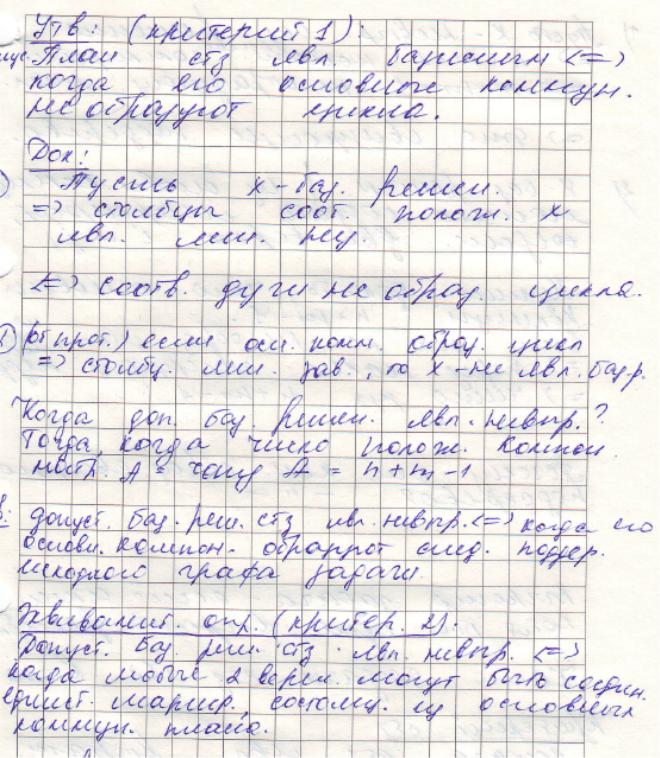 Утв: (критерий 1):
пус. План стз явл. базисным <=>
когда его основные коммун.
не образуют цикла.
Док:
Пусть x - баз. решен.
=> столбцы соот. полож. x
явл. лин. нез.
<=> соотв. дуги не образ. цикла.
(от прот.) если осн. комм. образ. цикл
=> столбц. лин. зав., то x - не явл. баз.р.
Когда доп. баз. решен. явл. невыр.?
Тогда, когда число полож. компон.
матр. A = рангу A = n+m-1
допуст. баз. реш. стз явл. невыр. <=> когда его
основн. компон. образуют дер.
исходного графа задачи.
Эквивалент. опр. (критер. 2).
Допуст. баз. реш. стз явл. невыр. <=>
когда любые 2 верш. могут быть соедин.
единст. маршр., состоящ. из основных
коммун. плана.